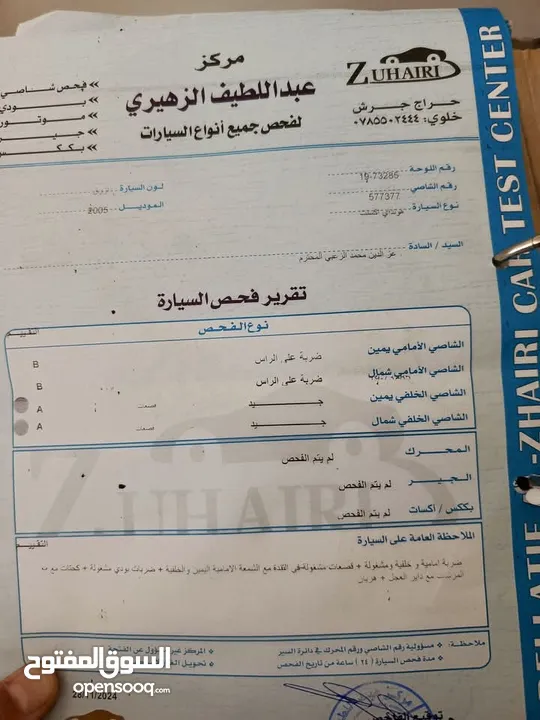 مركز
عبداللطيف الزهيري
لفحص جميع أنواع السيارات
ZUHAIRI
حراج جرش
خلوي: ٠٧٨٥٥٠٢٤٤٤
» فحص شاصي
» بودي
» موتور
» جير
» بكس
رقم اللوحة 19-73285
رقم الشاصي 577377 لون السيارة
نوع السيارة هونداي اكسنت الموديل 2005
السيد / السادة عز الدين محمد الزعبي المحترم
تقرير فحص السيارة
نوع الفحص التقييم
الشاصي الأمامي يمين ضربة على الراس B
الشاصي الأمامي شمال ضربة على الراس B
الشاصي الخلفي يمين جيد قصعات A
الشاصي الخلفي شمال جيد قصعات A
المحرك لم يتم الفحص
الجير لم يتم الفحص
بككس / أكسات لم يتم الفحص
ZUHAIRI
الملاحظة العامة على السيارة التقييم
ضربة امامية و خلفية ومشغولة + قصعات مشغولة في الغدة مع الشمعة الامامية اليمين والخلفية + ضربات بودي مشغولة + كحتات مع
داير العجل + هريان
ملاحظة: ❖ مسؤولية رقم الشاصي ورقم المحرك في دائرة السير ❖ المركز غير مسؤول عن
❖ مدة فحص السيارة (٢٤) ساعة من تاريخ الفحص ❖ تحويل
28/11/2024
السوق المفتوح
opensooq.com
-ZHAIRI CAR TEST CENTER